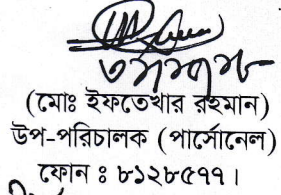 (মোঃ ইফতেখার রহমান)
উপ-পরিচালক (পার্সোনেল)
ফোন ঃ ৮১২৮৫৭৭।